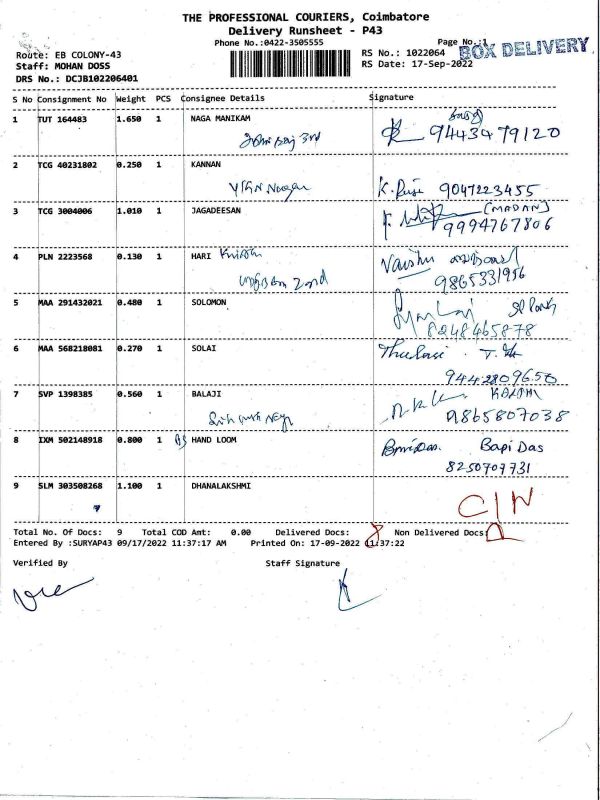 THE PROFESSIONAL COURIERS, Coimbatore
Delivery Runsheet - P43
Phone No.:0422-3505555
Page No.:1
BOX DELIVERY
Route: EB COLONY-43
RS No.: 1022064
Staff: MOHAN DOSS
RS Date: 17-Sep-2022
DRS No.: DCJB102206401
S No Consignment No Weight PCS Consignee Details Signature
1 TUT 164483 1.650 1 NAGA MANIKAM
9443479120
2 TCG 40231802 0.250 1 KANNAN
VKN Nagar
K. 9047223455
3 TCG 3004006 1.010 1 JAGADEESAN
(MADAN)
9994767806
4 PLN 2223568 0.130 1 HARI
2nd
Vaishu
9865331956
5 MAA 291432021 0.480 1 SOLOMON
8248465878
6 MAA 568218081 0.270 1 SOLAI
Thulasi
9442809650
7 SVP 1398385 0.560 1 BALAJI
9865807038
8 IXM 502148918 0.800 1 HAND LOOM
Bapi Das
8250707731
9 SLM 303508268 1.100 1 DHANALAKSHMI
C/N
Total No. Of Docs: 9 Total COD Amt: 0.00 Delivered Docs: 8 Non Delivered Docs:
Entered By :SURYAP43 09/17/2022 11:37:17 AM Printed On: 17-09-2022 11:37:22
Verified By Staff Signature